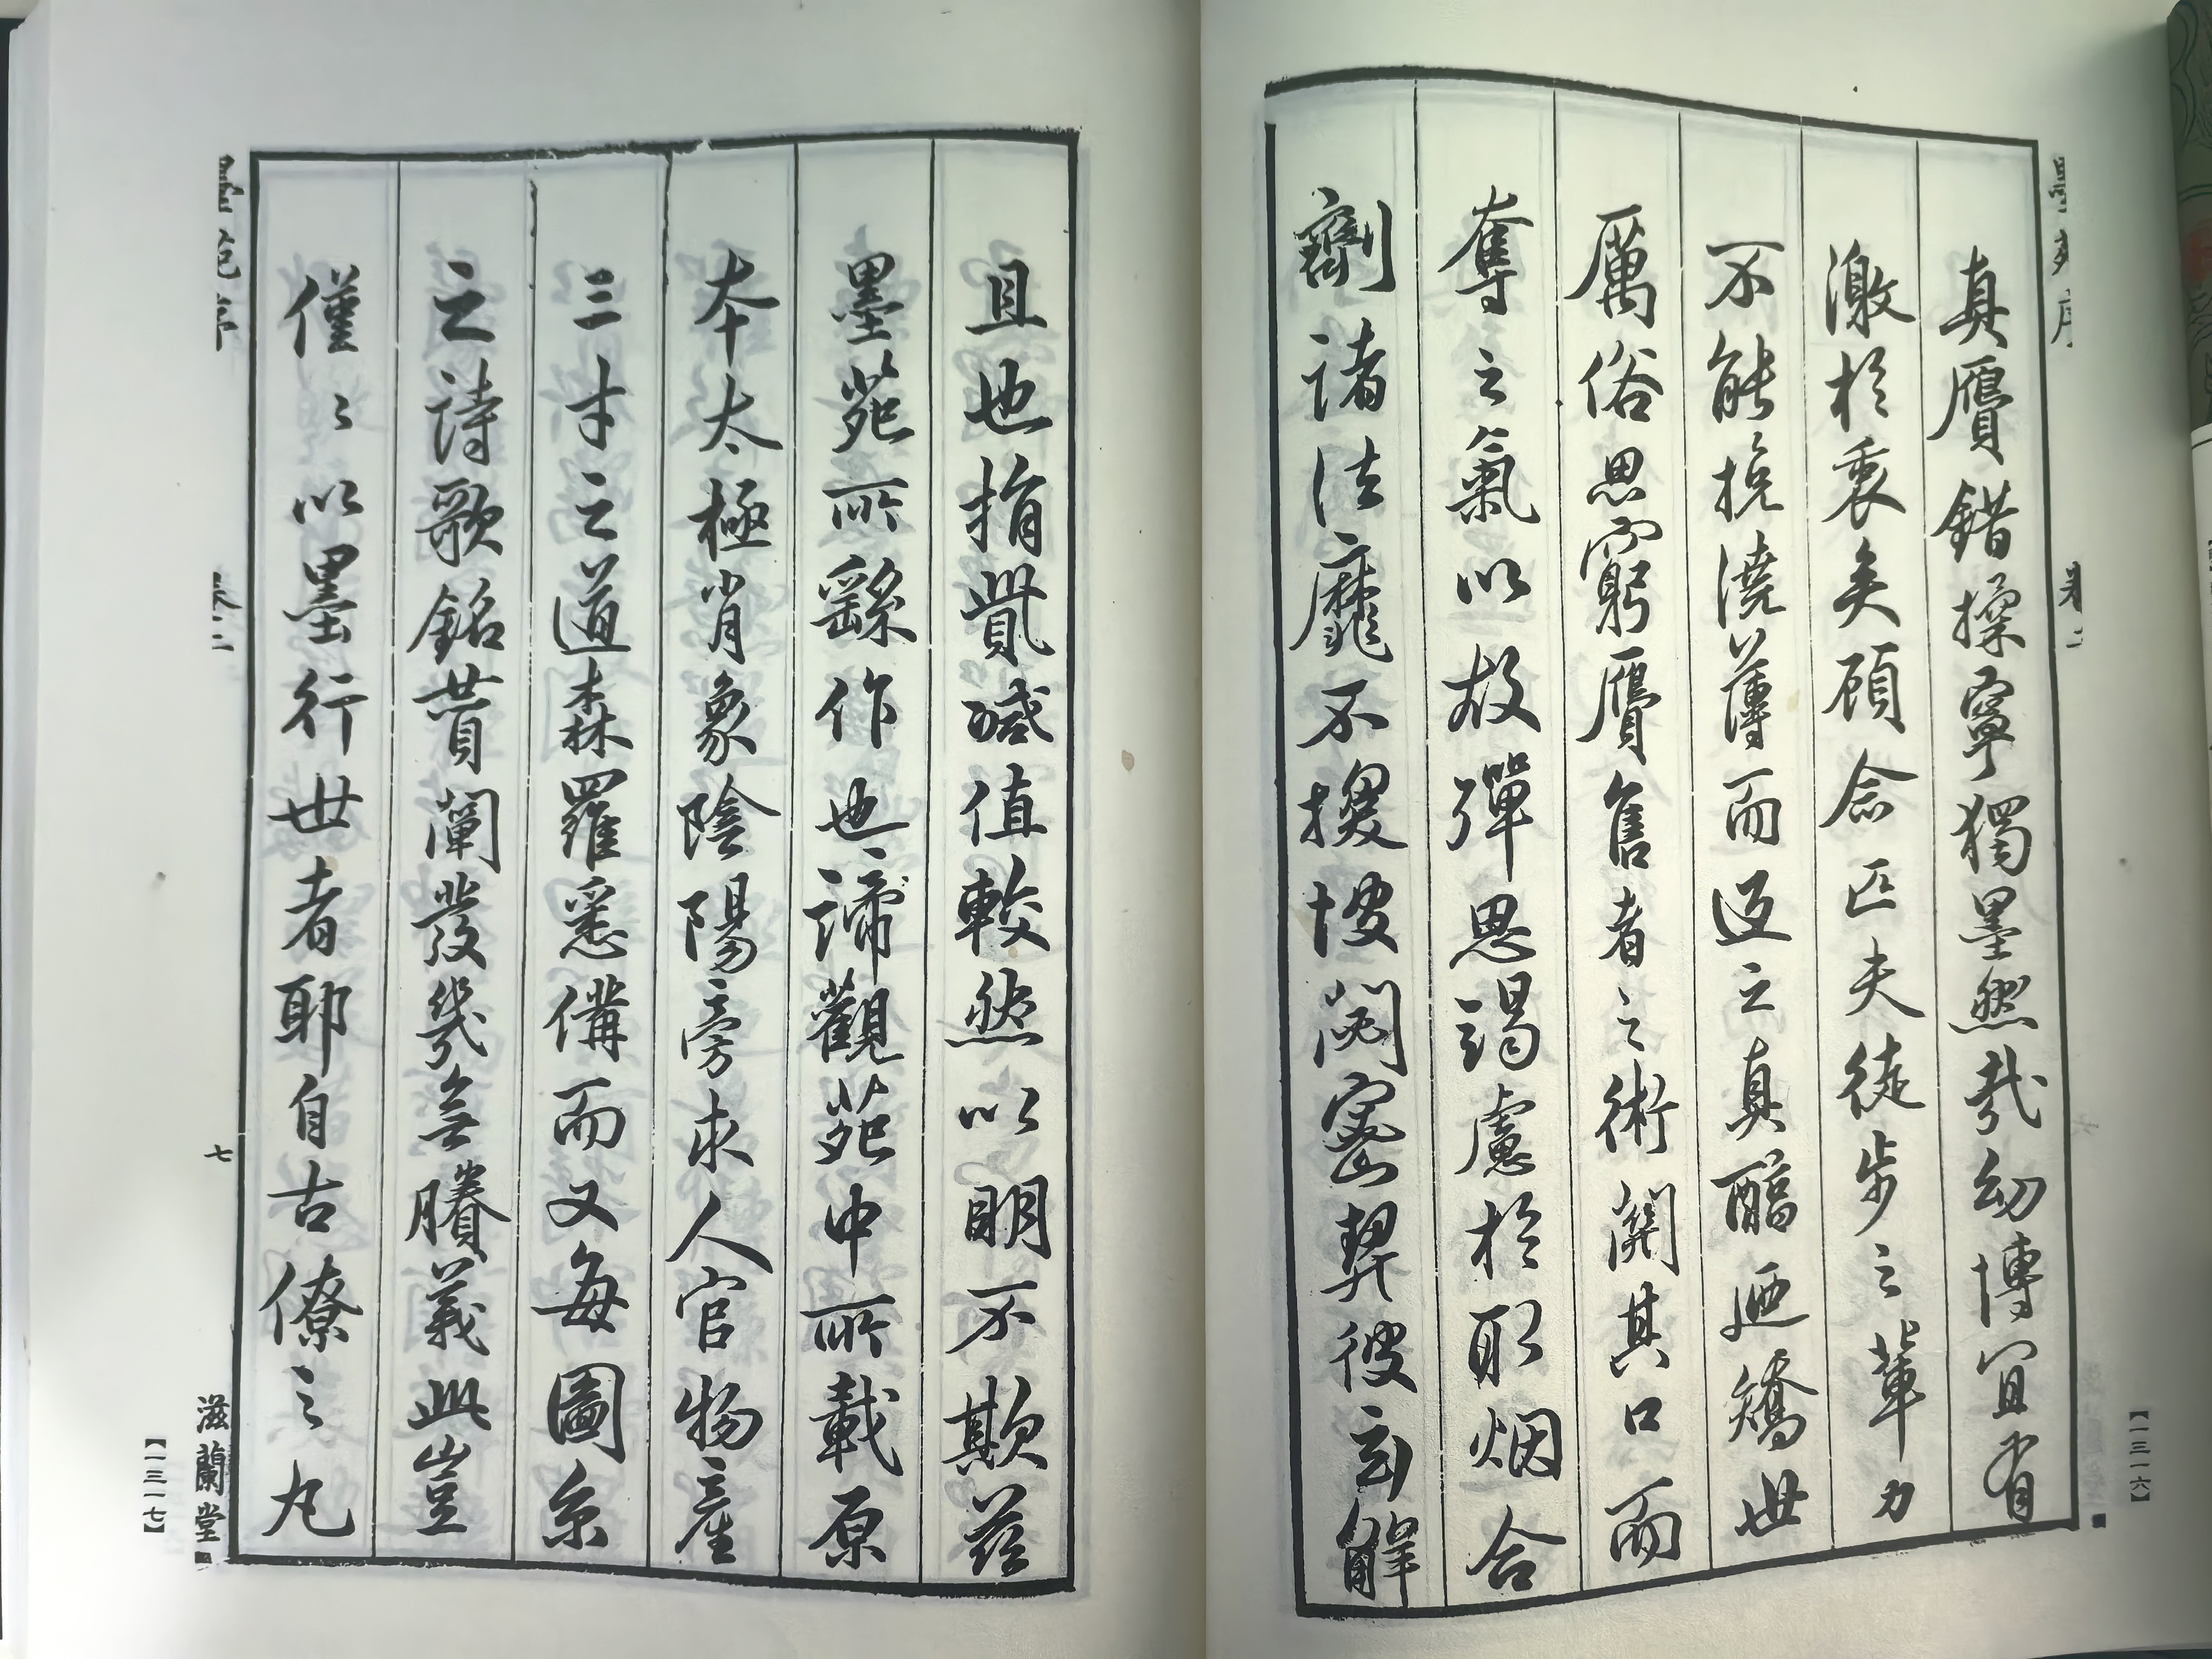 墨苑序
卷二
真贗錯操寧獨墨然哉幼博宜有
激於衷矣顧念匹夫徒步之輩力
不能挽澆薄而返之真醇迺矯世
厲俗思窮贗售者之術關其口而
奪之氣以故彈思竭慮於取烟合
劑諸法靡不搜

密契彼玄解
【一三一六】
且也指貲緘值較然以明不欺茲
墨苑所繇作也諦觀苑中所載原
本太極肖象陰陽旁求人官物産
三才之道森羅悉備而又每圖系
之詩歌銘贊闡發幾無賸義此豈
僅〻以墨行世者耶自古僚之丸
墨苑序
卷二
七
滋蘭堂
【一三一七】